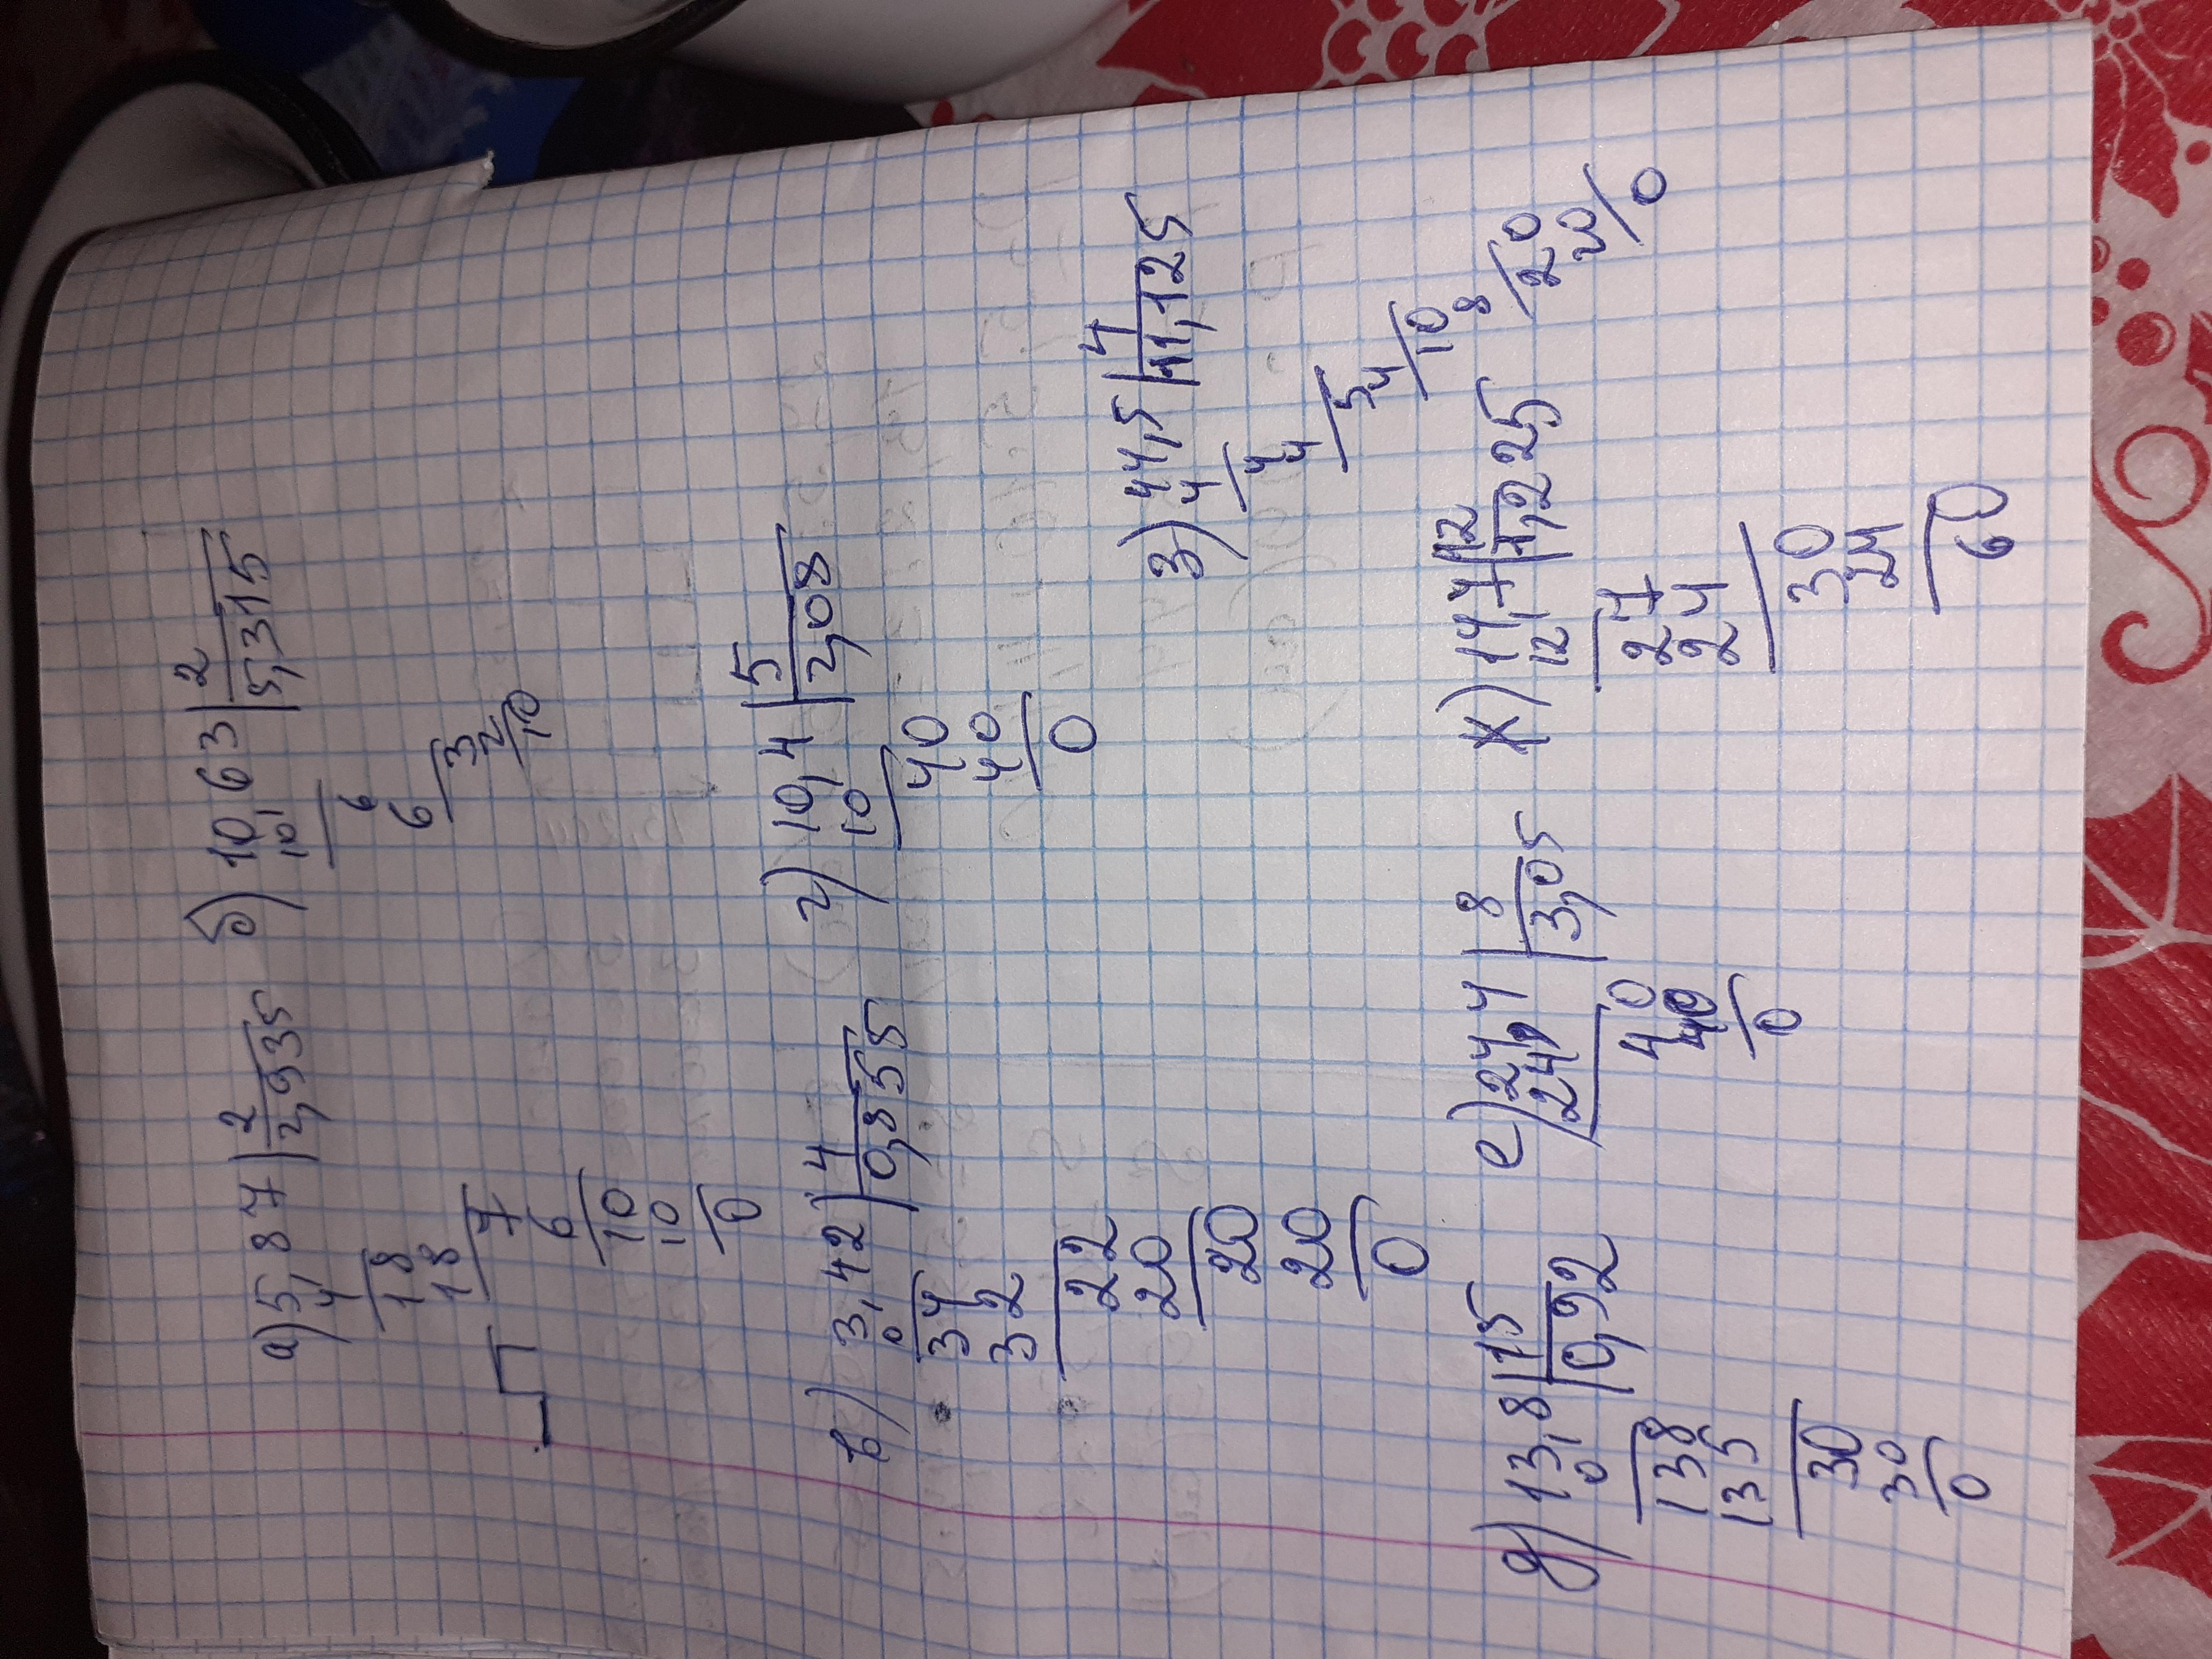 а) 5,87 | 2
4, 2,935
18
18
7
6
10
10
0
б) 10,63 | 2
10, 5,315
6
6
3
2
10
в) 3,42 | 4
0 0,855
34
32
22
20
20
20
0
г) 10,4 | 5
10, 2,08
40
40
0
д) 13,8 | 15
0 0,92
138
135
30
30
0
е) 24,4 | 8
24 3,05
40
40
0
ж) 14,7 | 12
12, 1,225
27
24
30
24
60
з) 44,5 | 4
4 11,125
4
4
5
4
10
8
20
20
0